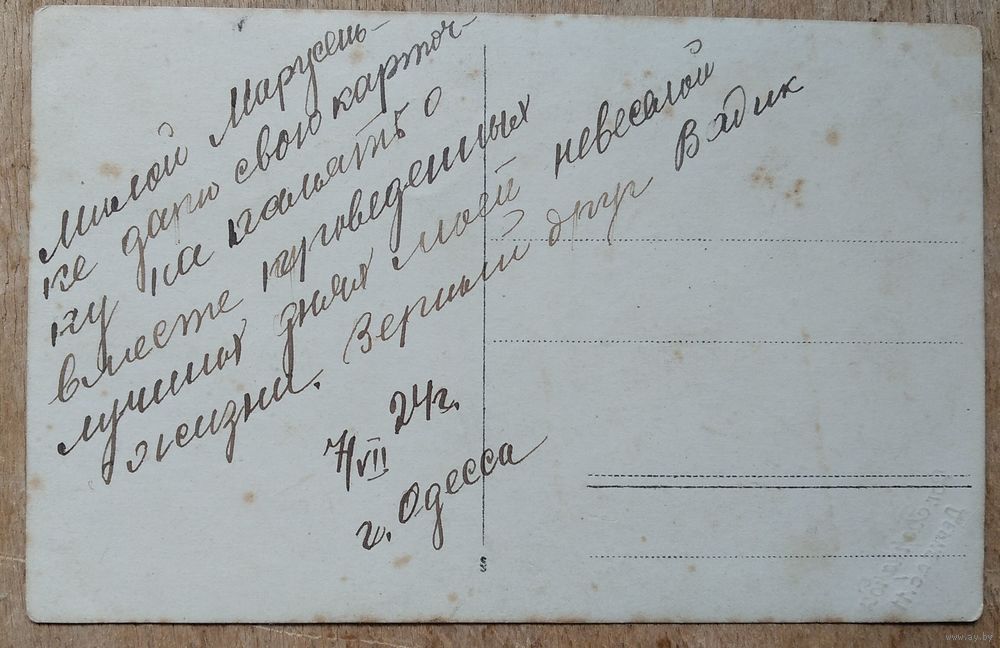 Милой Марусень-
ке дарю свою карточ-
ку на память о
вместе проведенных
лучших днях моей невеселой
жизни. Верный друг Вадик
7/VII 24 г.
г. Одесса
www.ay.by